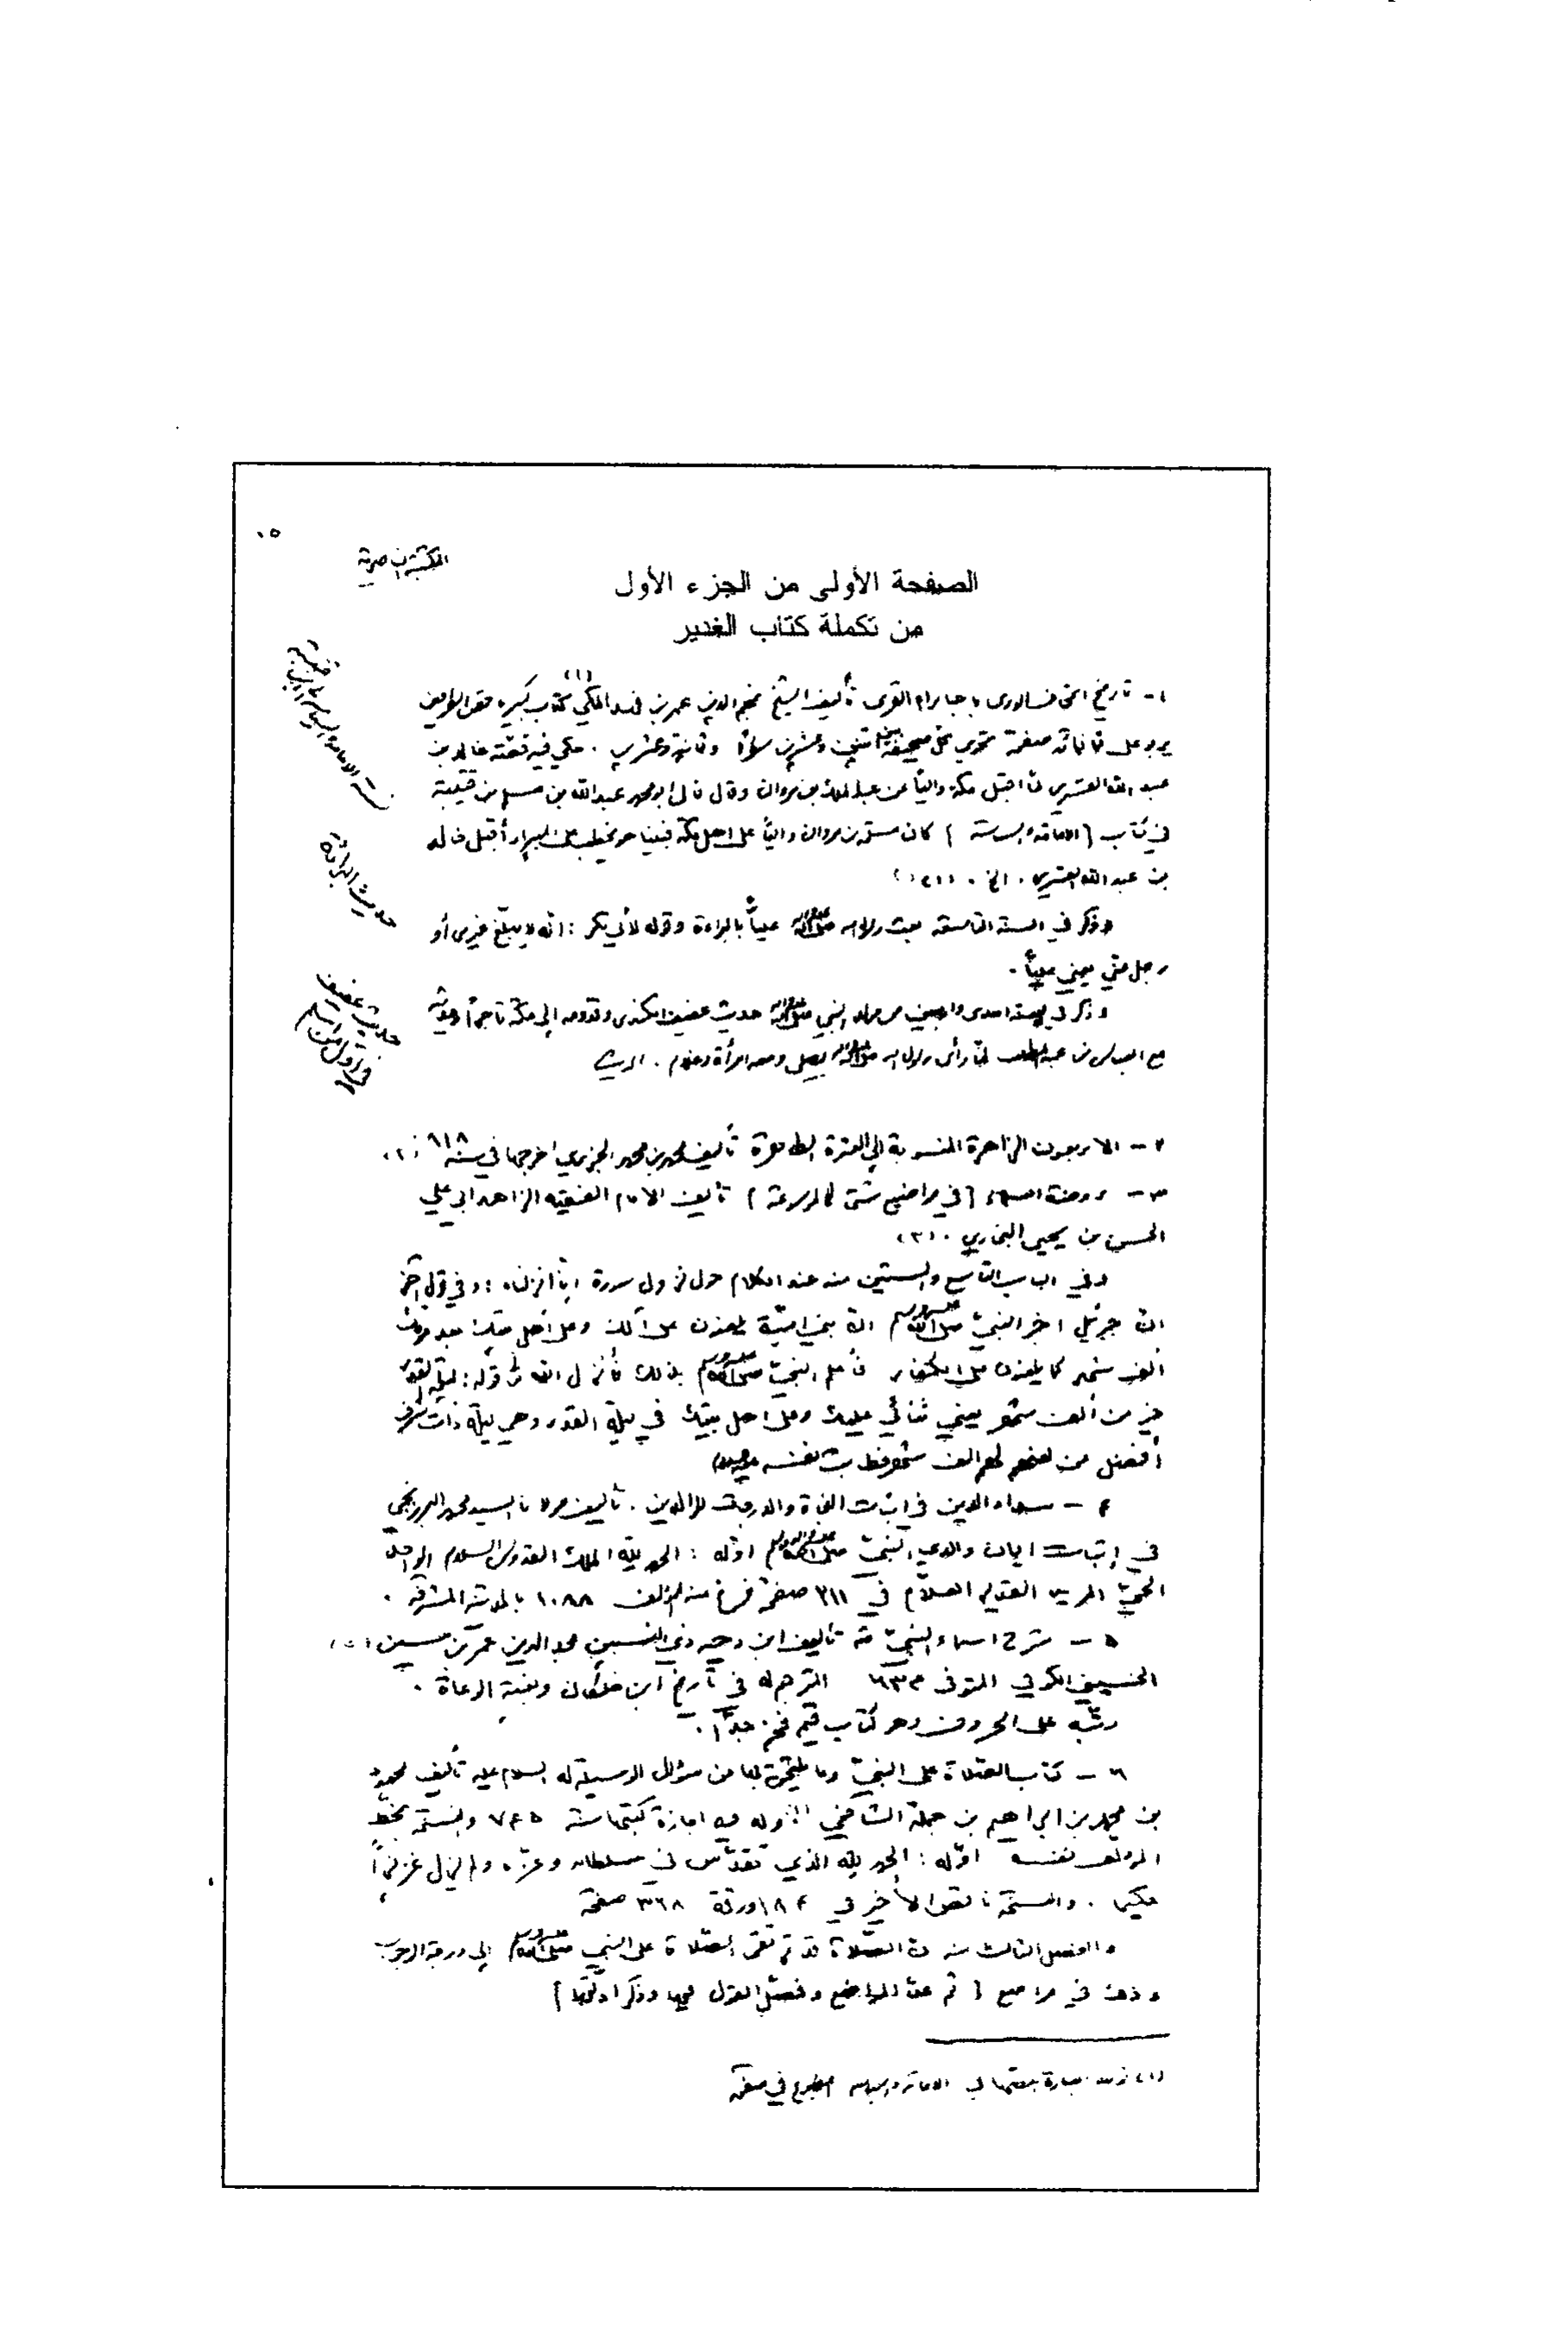 ١٥
المكتبة الناصرية
الصفحة الأولى من الجزء الأول
من تكملة كتاب الغدير
١ - تاريخ اتحاف الورى باخبار ام القرى تأليف الشيخ نجم الدين عمر بن فهد المكي (١) كتاب كبير
يربو على ثمانمائة صفحة تحتوي كل صحيفة وعشرين وعشرين . حكي فيه قصّة خالد بن
عبد الله القسري لمّا اقبل مكة والياً من عبد الملك بن مروان وقال قال ابو محمد عبد الله بن مسلم بن قتيبة
في كتاب (الامامة والسياسة) كان مسلمة بن مروان والياً على اهل مكة فبينا هو يخطب على المنبر اذ أقبل خالد
بن عبد الله القسري . الخ .
وذكر في السنة التاسعة بعث رسول الله صلى الله عليه وآله علياً بالبراءة وقوله لأبي بكر : انه لا يبلّغ غيري أو
رجل منّي يعني علياً .
وذكر في السنة احدى واربعين من مولد النبي صلى الله عليه وآله حديث عفيف الكندي وقدومه إلى مكة تاجراً
مع العباس بن عبد المطلب لمّا رأى رسول الله صلى الله عليه وآله يصلي ومعه امرأة وغلام . الحديث
حديث البراءة
حديث عفيف
٢ - الاربعون الزاهرة المنسوبة إلى العترة الطاهرة تأليف محمد بن محمد الجزري اخرجها في سنة ٨١٨ (٢)
٣ - روضة العلماء (في مواضيع شتى كالموسوعة) تأليف الامام الفقيه الزاهد ابي علي
الحسن بن يحيى البخاري . (٣)
وفي الباب التاسع والستين منه عند الكلام حول نزول سورة انّا انزلناه : وفي قول آخر
انّ جبرئيل اخبر النبيّ صلى الله عليه وسلم انّ بني اميّة يلعنون على آلك وعلى أهل بيتك بعد موتك
ألف شهر كما يلعنون على الكفار فأعلم النبيّ صلى الله عليه وسلم بذلك فأنزل الله قوله : ليلة القدر
خير من ألف شهر يعني ثنائي عليك وعلى اهل بيتك في ليلة القدر وهي ليلة ذات شرف
أفضل من لعنهم لهم الف شهر
٤ - سداد الدين في اثبات النجاة والدرجات للوالدين . تأليف مولانا السيد محمد البرزنجي
في إثبات ايمان والدي النبيّ صلى الله عليه وآله وسلم اوّله : الحمد لله الملك القدوس السلام الواحد
الحيّ المريد القديم العلّام في ٣١١ صفحة فرغ منه المؤلف ١٠٨٨ بالمدينة المشرفة .
٥ - شرح اسماء النبيّ تأليف ابن دحية ذي النسبين مجد الدين عمر بن حسين
الحسيني الكوفي المتوفى ٦٣٣ المترجم له في تأريخ ابن خلكان وبغية الوعاة .
رتبّه على الحروف وهو كتاب قيّم فخم جداً .
٦ - كتاب الصلاة على النبيّ وما يلتحق بها من سؤال الوسيلة له السلام عليه تأليف محمود
بن محمد بن ابراهيم بن جملة الشافعي اجازة كتبها سنة ٧٤٥ والنسخة بخطّ
المؤلف نفسه اوّله : الحمد لله الذي تقدّس في سلطانه وعزّه ولم يزل عزيزاً
حكيما . والنسخة ناقص الأخير في ١٨٤ ورقة ٣٦٨ صفحة
والفصل الثالث منه انّ الصلاة قد ترتقى الصلاة على النبي صلى الله عليه وسلم إلى درجة الوجوب
وذلك في مواضع (ثم عدّ المواضع وفصّل القول فيها وذكر ادلتها)
(١) عبارة الامامة والسياسة المطبوع في صفحة